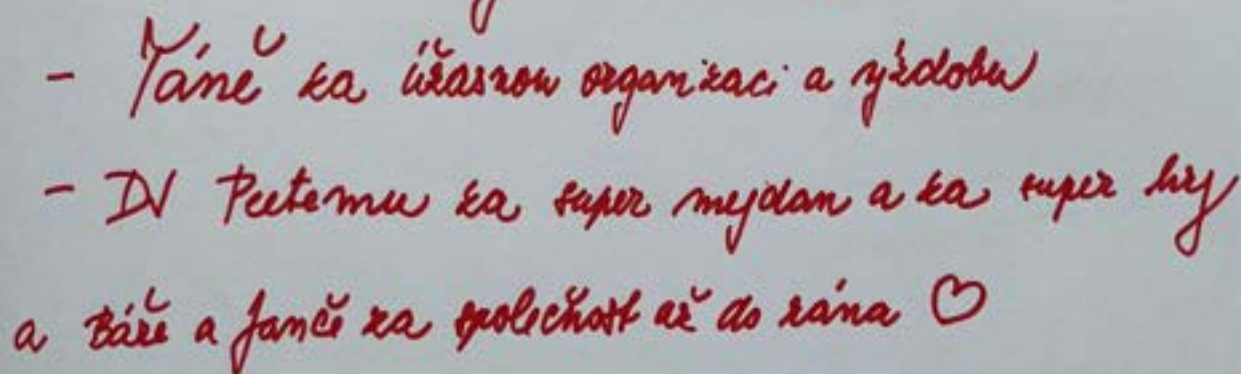 - Táně za úžasnou organizaci a výzdobu
- DJ Peetemu za super mejdan a za super hry
a Báře a Janče za společnost až do rána ♡